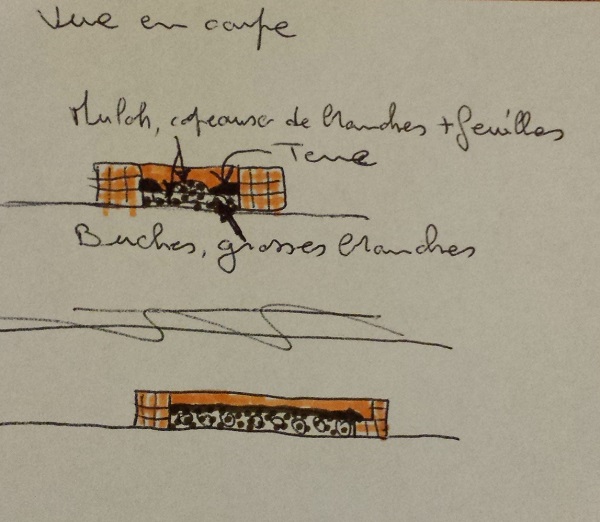 Vue en coupe
Mulch, copeaux de branches + feuilles
Terre
Buches, grosses branches